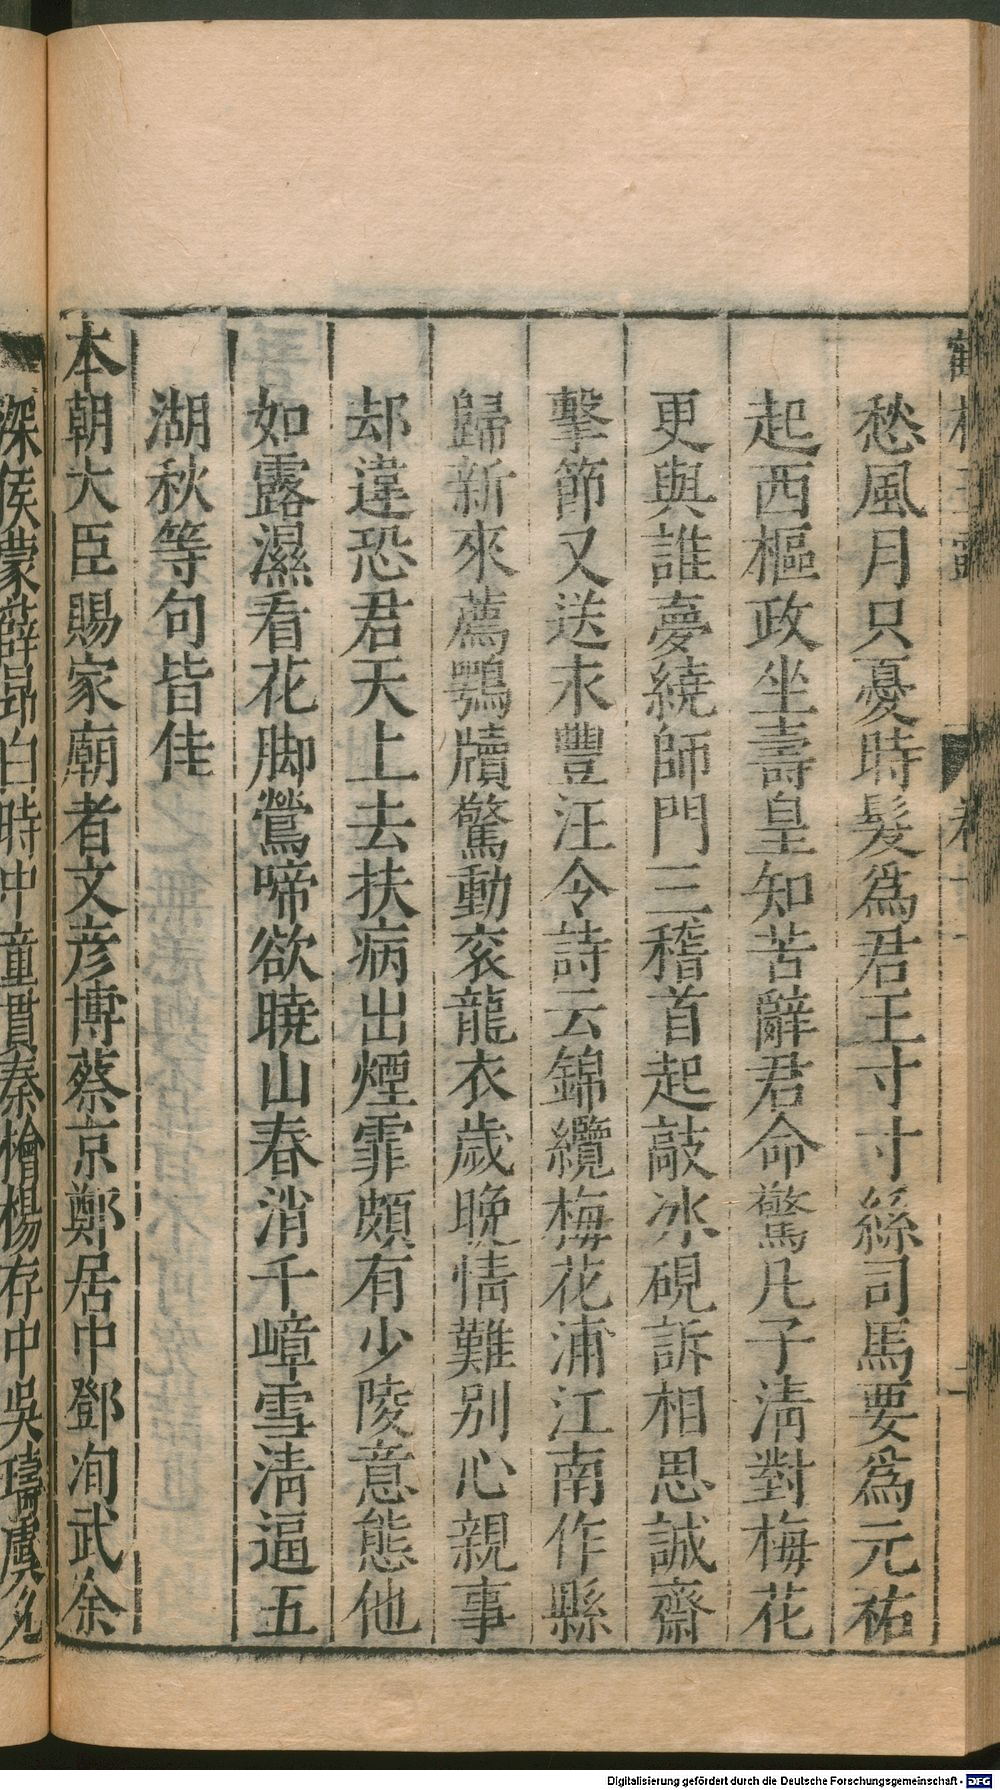 愁風月只憂時髮爲君王寸寸絲司馬要爲元祐
起西樞政坐壽皇知苦辭君命驚凡子清對梅花
更與誰夢繞師門三稽首起敲冰硯訴相思誠齋
擊節又送永豐汪令詩云錦纜梅花浦江南作縣
歸新來薦鶚牘驚動衮龍衣歲晚情難别心親事
却違恐君天上去扶病出煙霏頗有少陵意態他
如露濕看花脚鶯啼欲曉山春消千嶂雪清逼五
湖秋等句皆佳
本朝大臣賜家廟者文彦博蔡京鄭居中鄧洵武余
深侯蒙薛昂白時中童貫秦檜楊存中吳璘虞允
Digitalisierung gefördert durch die Deutsche Forschungsgemeinschaft - DFG